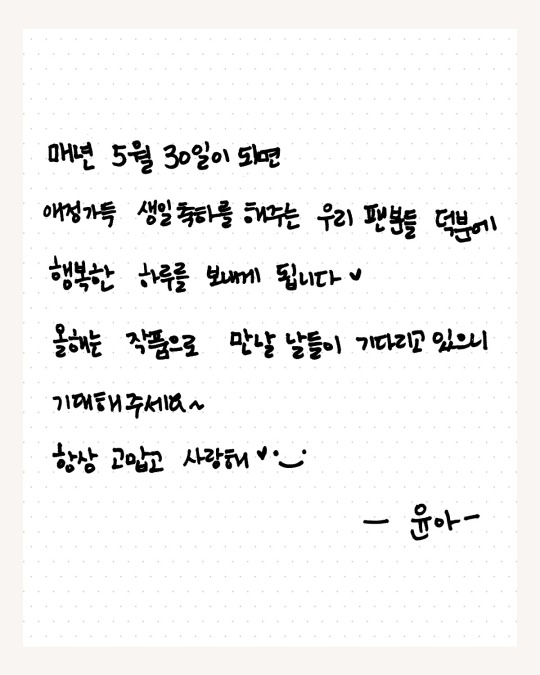 매년 5월 30일이 되면
애정가득 생일축하를 해주는 우리 팬분들 덕분에
행복한 하루를 보내게 됩니다♥
올해는 작품으로 만날 날들이 기다리고 있으니
기대해주세요~
항상 고맙고 사랑해♥
- 윤아 -